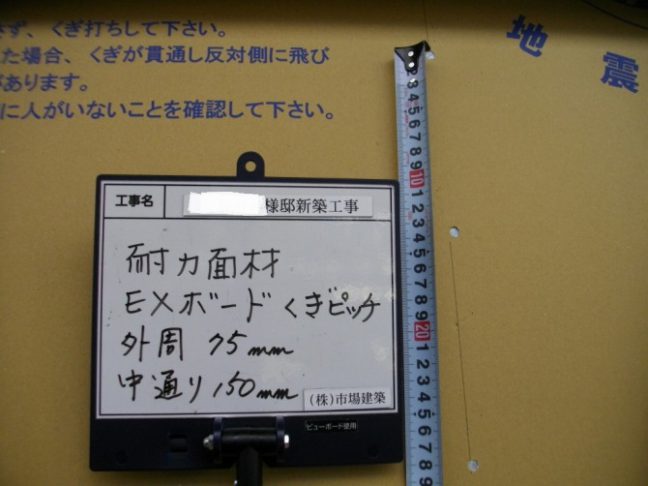 ず、くぎ打ちして下さい。
た場合、くぎが貫通し反対側に飛び
があります。
に人がいないことを確認して下さい。
地震
工事名
様邸新築工事
耐力面材
EXボードくぎピッチ
外周 75mm
中通り150mm
(株)市場建築
ビューボード使用
3 4 5 6 7 8 9 10 1 2 3 4 5 6 7 8 9 20 1 2 3 4 5 6 7 8 9